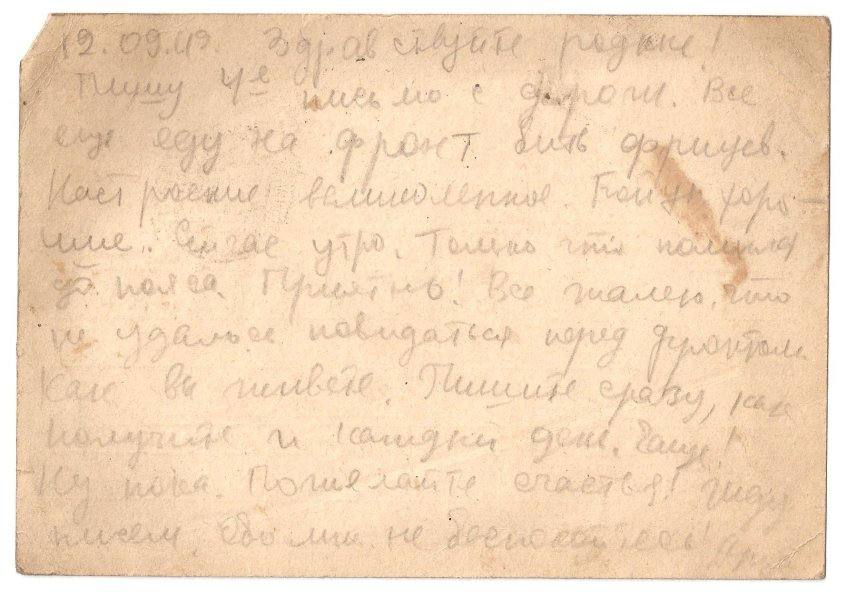 Здравствуйте родные!
Пишу 4е письмо с дороги. Все
еще еду на фронт бить фрицев.
Настроение великолепное. Харо-
шие. утро. Только что помылся
до пояса. Приятно! Все жалею, что
не удалось повидаться перед фронтом.
Как вы живете. Пишите сразу, как
получите и каждый день. Чаще!
Ну пока. Пожелайте счастья! Жду
писем, не беспокойтесь!